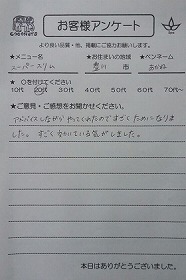 お客様アンケート
より良い品質・技、掲載にご協力お願いします。
★メニュー名 ★お住まいの地域 ★ペンネーム
スーパースリム 豊川 市 あかね
★○を付けてください
10代 20代 30代 40代 50代 60代
★ご意見・ご感想をお聞かせください。
アドバイスしながらやってくれたのですごくためになりま
した。すごくながいている気がしました。
本日はありがとうございました。